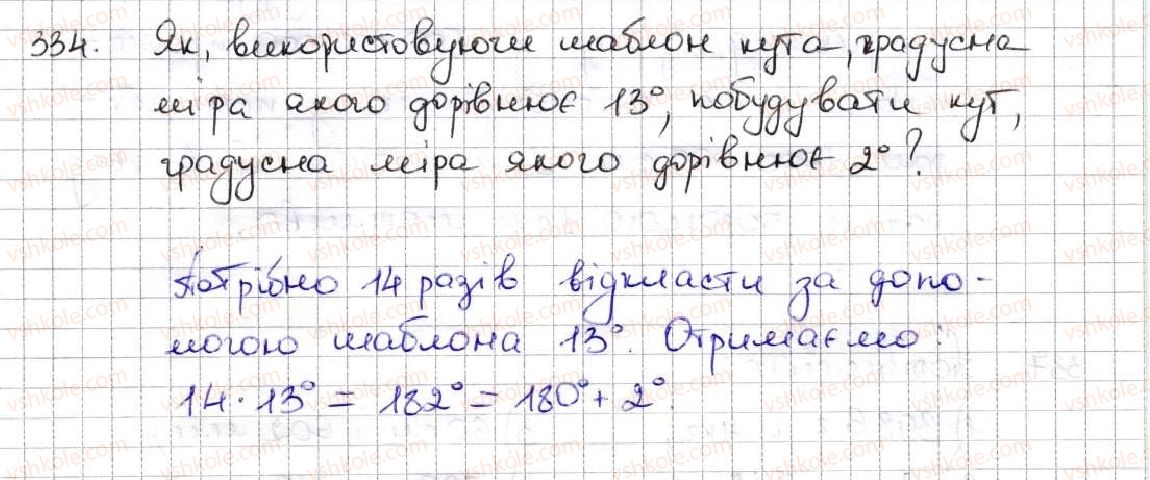 334. Як, використовуючи шаблон кута, градусна
міра якого дорівнює 13°, побудувати кут,
градусна міра якого дорівнює 2°?
Потрібно 14 разів відкласти за допо-
могою шаблона 13°. Отримаємо:
14 · 13° = 182° = 180° + 2°.